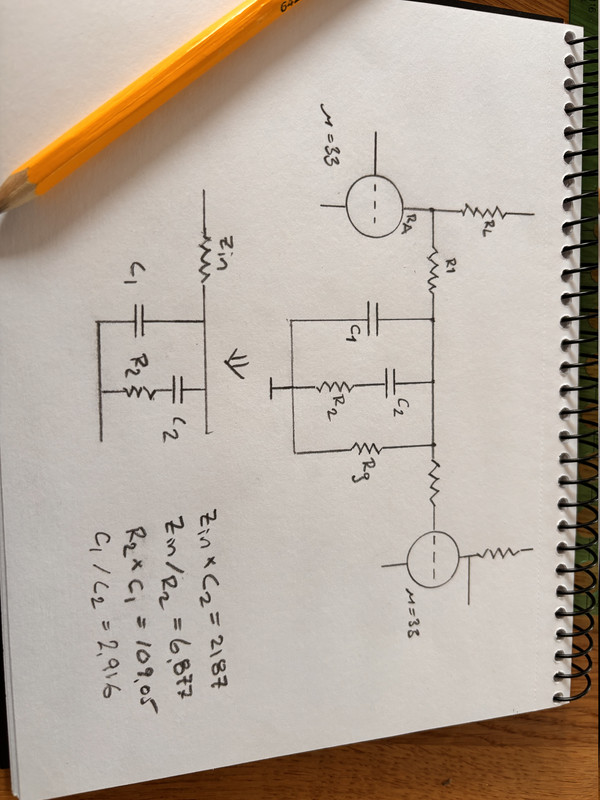 μ = 33
RA
RL
R1
C1
C2
R2
Rg
μ = 33
Zin
C1
R2
C2
Zin × C2 = 2187
Zin / R2 = 6,877
R2 × C1 = 109,05
C1 / C2 = 2,916